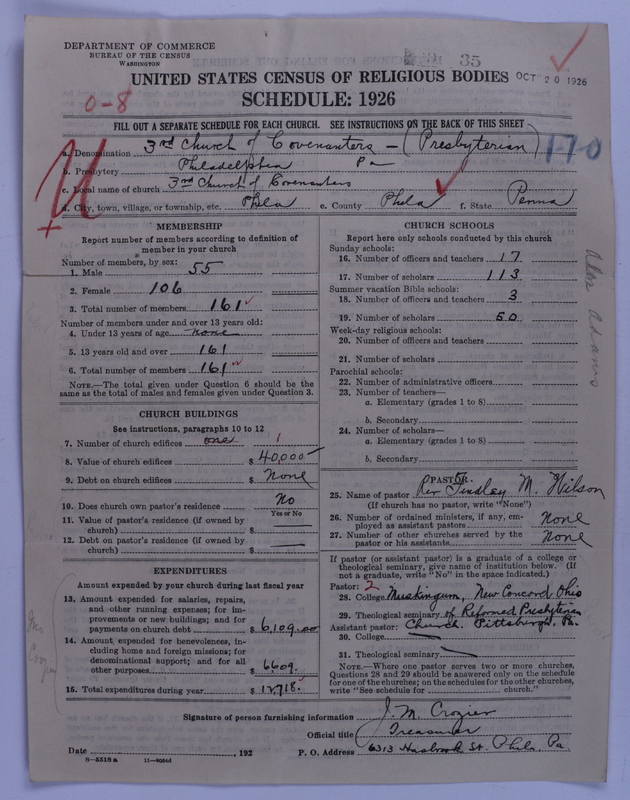 DEPARTMENT OF COMMERCE
BUREAU OF THE CENSUS
WASHINGTON
35
OCT 20 1926
UNITED STATES CENSUS OF RELIGIOUS BODIES
SCHEDULE: 1926
0-8
FILL OUT A SEPARATE SCHEDULE FOR EACH CHURCH. SEE INSTRUCTIONS ON THE BACK OF THIS SHEET
170
a. Denomination 3rd Church of Covenanters - (Presbyterian)
b. Presbytery Philadelphia Pa
c. Local name of church 3rd Church of Covenanters
d. City, town, village, or township, etc. Phila e. County Phila f. State Penna
MEMBERSHIP
Report number of members according to definition of
member in your church
Number of members, by sex:
1. Male 55
2. Female 106
3. Total number of members 161
Number of members under and over 13 years old:
4. Under 13 years of age none
5. 13 years old and over 161
6. Total number of members 161
NOTE.—The total given under Question 6 should be the
same as the total of males and females given under Question 3.
CHURCH BUILDINGS
See instructions, paragraphs 10 to 12
7. Number of church edifices one 1
8. Value of church edifices $ 40,000
9. Debt on church edifices $ None
10. Does church own pastor's residence No
Yes or No
11. Value of pastor's residence (if owned by
church) $
12. Debt on pastor's residence (if owned by
church) $
EXPENDITURES
Amount expended by your church during last fiscal year
13. Amount expended for salaries, repairs,
and other running expenses; for im-
provements or new buildings; and for
payments on church debt $ 6,109.00
14. Amount expended for benevolences, in-
cluding home and foreign missions; for
denominational support; and for all
other purposes $ 6609.
15. Total expenditures during year $ 12,718.
CHURCH SCHOOLS
Report here only schools conducted by this church
Sunday schools:
16. Number of officers and teachers 17
17. Number of scholars 113
Summer vacation Bible schools:
18. Number of officers and teachers 3
19. Number of scholars 50
Week-day religious schools:
20. Number of officers and teachers
21. Number of scholars
Parochial schools:
22. Number of administrative officers
23. Number of teachers—
a. Elementary (grades 1 to 8)
b. Secondary
24. Number of scholars—
a. Elementary (grades 1 to 8)
b. Secondary
PASTOR
25. Name of pastor Rev Findlay M. Wilson
(If church has no pastor, write "None")
26. Number of ordained ministers, if any, em-
ployed as assistant pastors None
27. Number of other churches served by the
pastor or his assistants None
If pastor (or assistant pastor) is a graduate of a college or
theological seminary, give name of institution below. (If
not a graduate, write "No" in the space indicated.)
Pastor: 2
28. College Muskingum, New Concord Ohio
29. Theological seminary of Reformed Presbyterian
Assistant pastor: Church. Pittsburgh. Pa.
30. College
31. Theological seminary
NOTE.—Where one pastor serves two or more churches,
Questions 28 and 29 should be answered only on the schedule
for one of the churches; on the schedules for the other churches,
write "See schedule for church."
Signature of person furnishing information J. M. Crozier
Official title Treasurer
Date , 192 P. O. Address 6313 Hasbrook St. Phila. Pa.
8—5518a